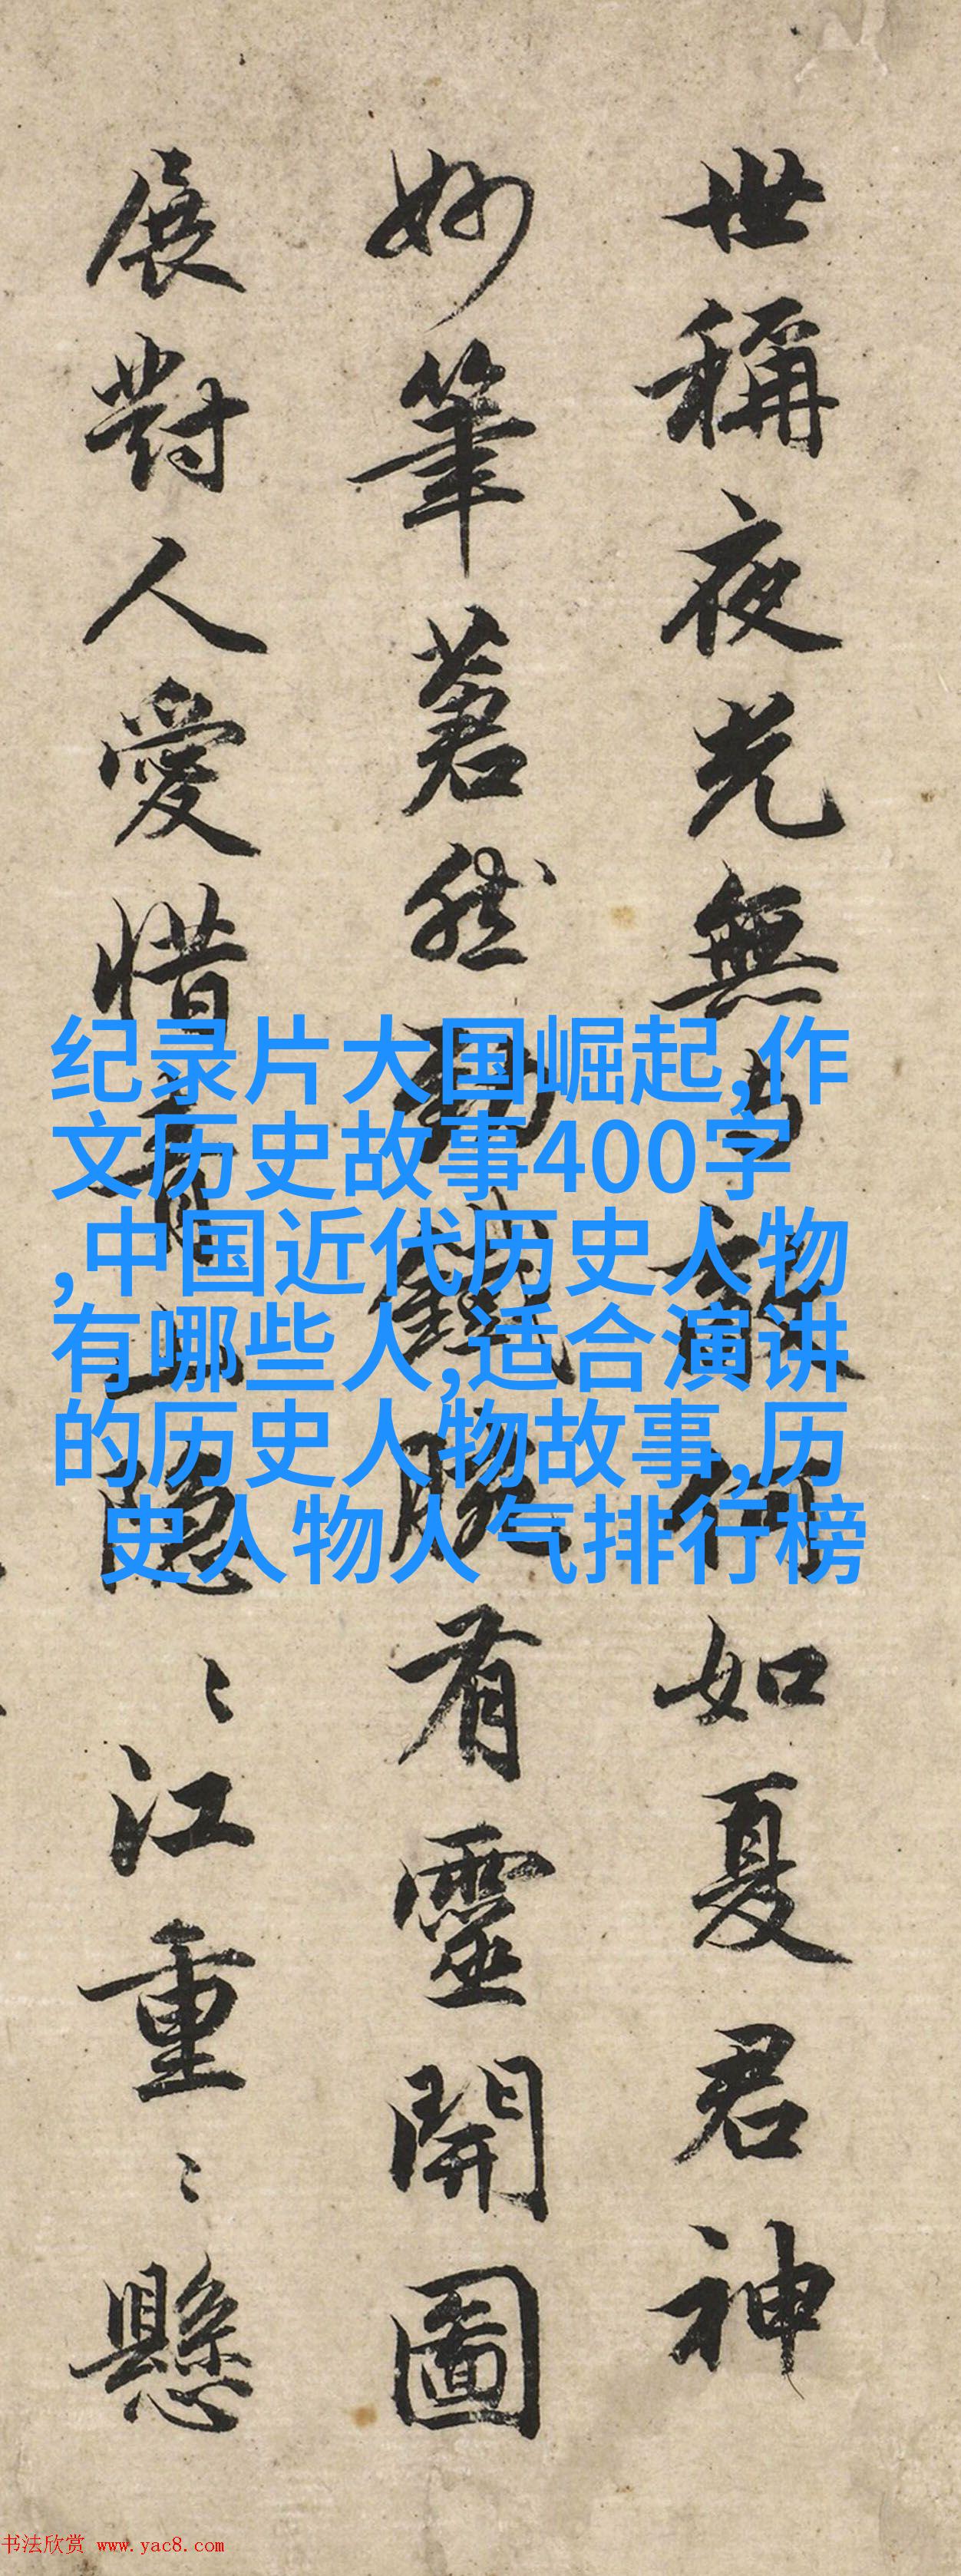 世稱夜光無与何如夏君神
妙筆然鐵腕有靈開圖
展對人愛惜青山隐〻江重〻懸
纪录片大国崛起,作
文历史故事400字
,中国近代历史人物
有哪些人,适合演讲
的历史人物故事,历
史人物人气排行榜
书法欣赏 www.yac8.com